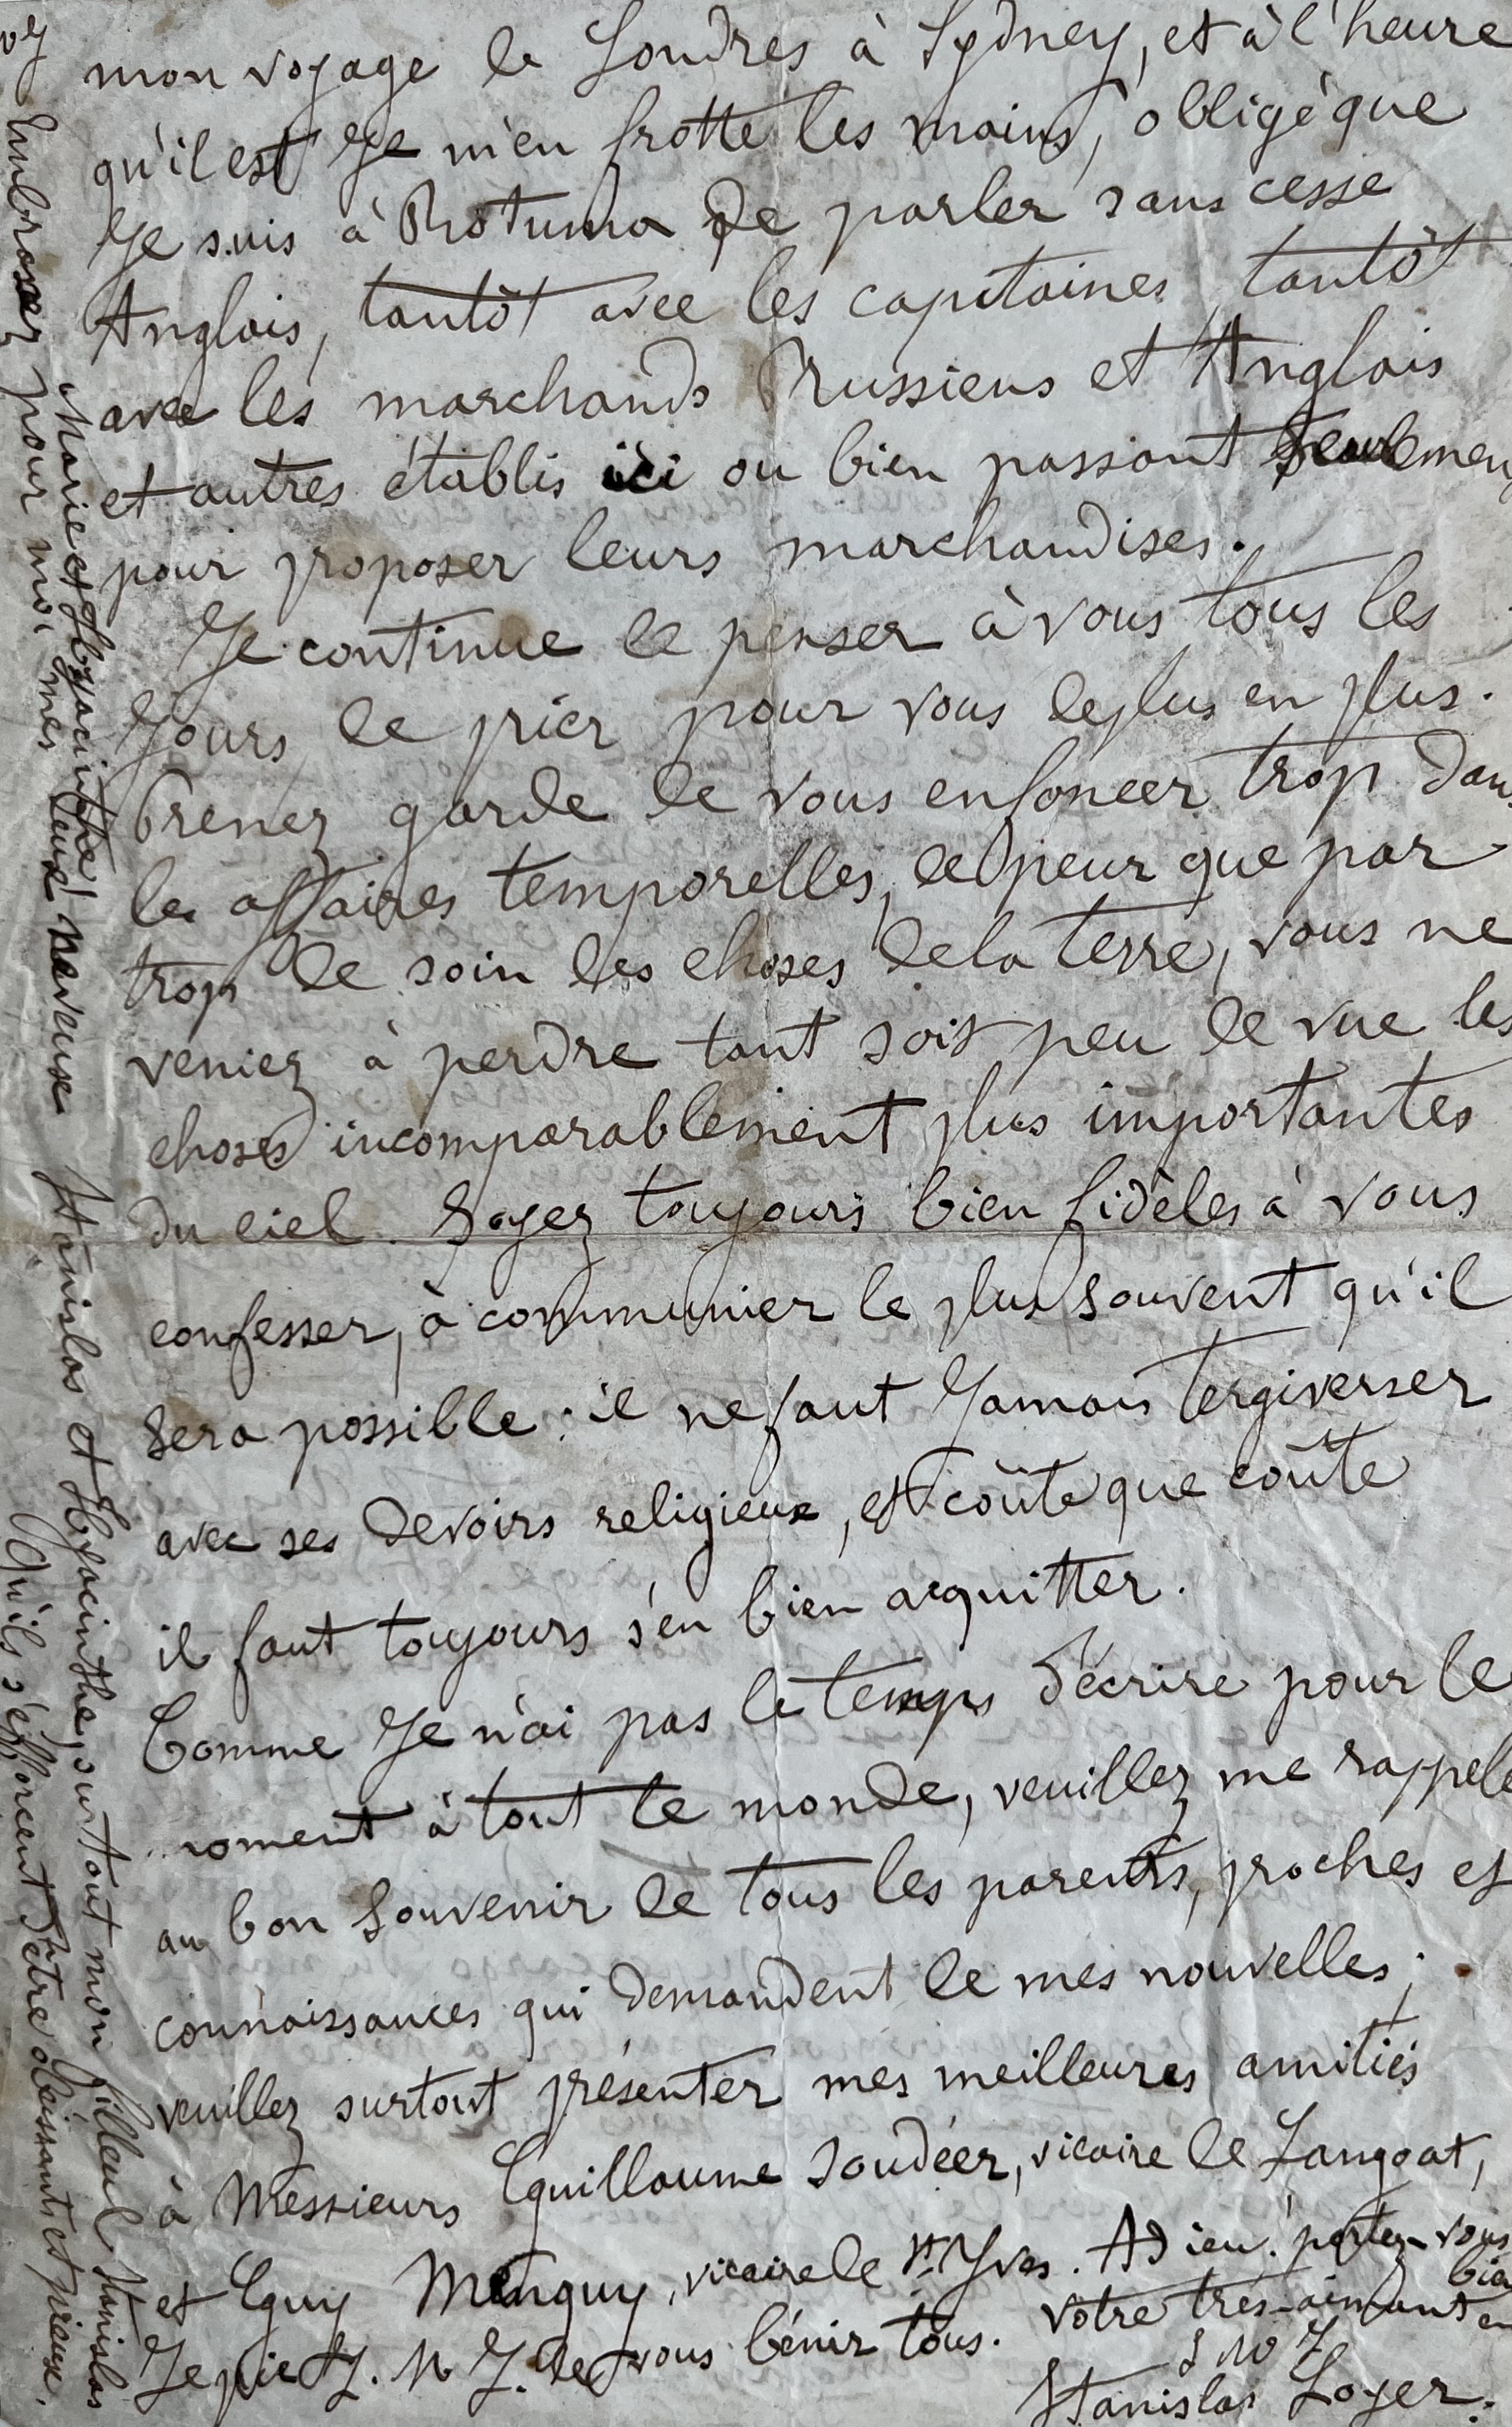 mon voyage de Londres à Sydney, et à l'heure
qu'il est je m'en frotte les mains, obligé que
je suis à Rotuma de parler sans cesse
Anglais, tantôt avec les capitaines, tantôt
avec les marchands Prussiens et Anglais
et autres établis ici ou bien passant seulement
pour proposer leurs marchandises.
Je continue de penser à vous tous les
jours, de prier pour vous de plus en plus.
Prenez garde de vous enfoncer trop dans
les affaires temporelles, de peur que par
trop de soin des choses de la terre, vous ne
veniez à perdre tant soit peu de vue les
choses incomparablement plus importantes
du ciel. Soyez toujours bien fidèles à vous
confesser, à communier le plus souvent qu'il
sera possible : il ne faut jamais tergiverser
avec ses devoirs religieux, et coûte que coûte
il faut toujours s'en bien acquitter.
Comme je n'ai pas le temps d'écrire pour le
moment à tout le monde, veuillez me rappeler
au bon souvenir de tous les parents, proches et
connaissances qui demandent de mes nouvelles ;
veuillez surtout présenter mes meilleures amitiés
à Messieurs Guillaume Soudéer, vicaire de Langoat,
et Guy Menguy, vicaire de St Yves. Adieu! portez-vous
bien
Je prie J. M J. de vous bénir tous. Votre très-aimant en
J M J
Stanislas Loyer.
Embrasez pour moi mes deux neveux Stanislas et Hyacinthe, surtout mon filleul Stanislas
Marie et Hyacinthe!
Qu'ils s'efforcent d'être obéissants et pieux.